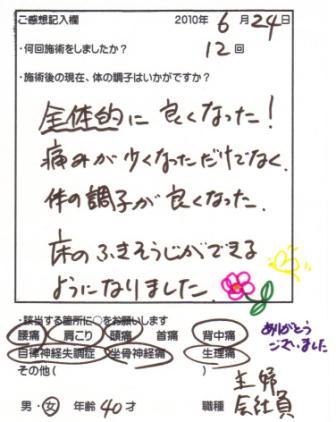 ご感想記入欄 2010年 6月24日
・何回施術をしましたか？ 12回
・施術後の現在、体の調子はいかがですか？
全体的に 良くなった！
痛みが少くなっただけでなく、
体の調子が良くなった。
床のふきそうじができる
ようになりました。
・該当する箇所に○をお願いします
腰痛 肩こり 頭痛 首痛 背中痛
自律神経失調症 坐骨神経痛 生理痛
その他( )
ありがとう
ございました
男・女 年齢 40才 職種 主婦
会社員